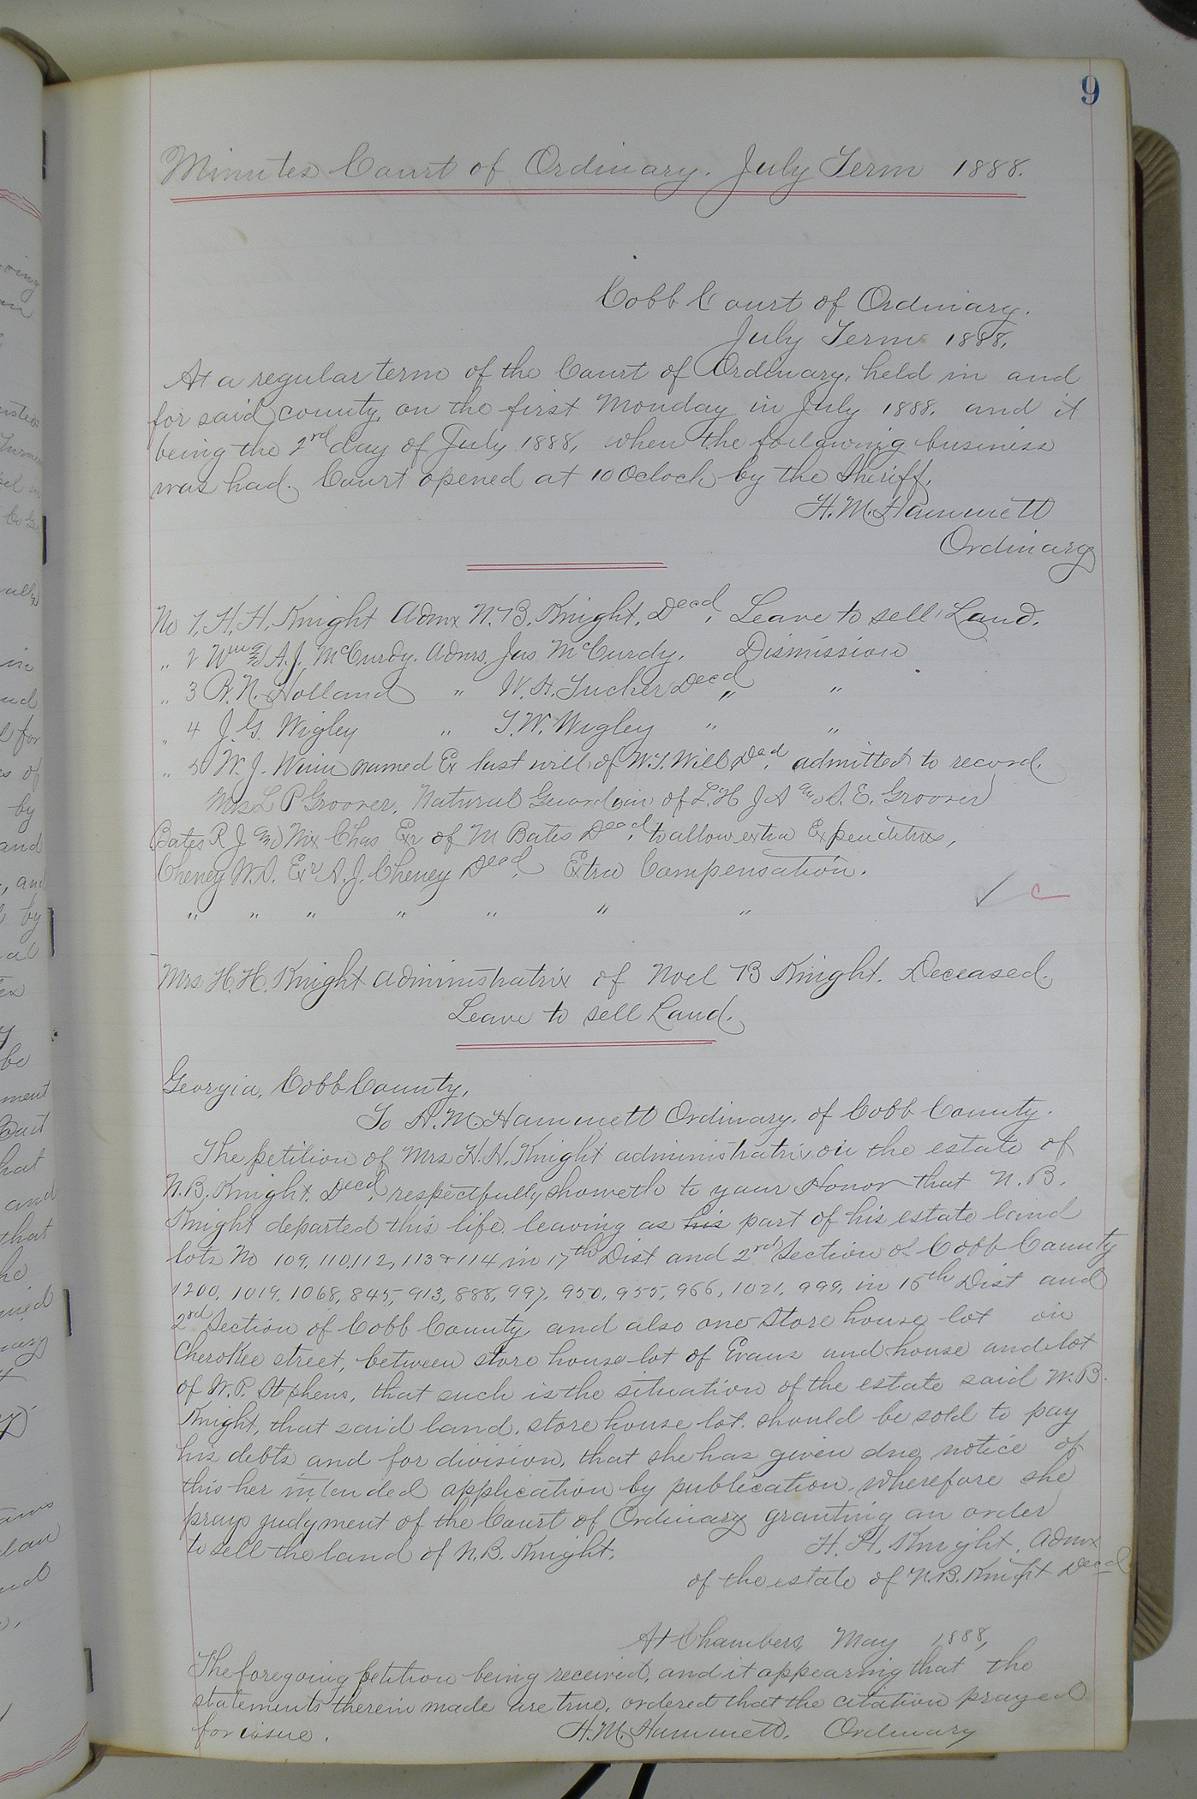 9
Minutes Court of Ordinary. July Term 1888.
Cobb Court of Ordinary.
July Term 1888.
At a regular term of the Court of Ordinary, held in and
for said county, on the first Monday in July 1888. and it
being the 2nd day of July 1888, when the following business
was had. Court opened at 10 Oclock by the Sheriff.
H. M. Hammett
Ordinary
No 1, H. H. Knight Admx N. B. Knight, Decd. Leave to sell Land.
" 2 Wm & A. J. McCurdy. Admrs. Jas McCurdy. Dismission
" 3 R. N. Holland " W. A. Tucker Decd " "
" 4 J. G. Wigley " T. W. Wigley " "
" 5 W. J. Winn named Ex last will of W. T. Will Decd. admitted to record.
Mrs L P Groover, Natural Guardian of L. H J A and S. E. Groover
Bates R J and Nix Chas Exr of M Bates Decd. to allow extra Expenditures,
Cheney W. S. Exr A. J. Cheney Decd. Extra Compensation.
" " " " " " " ✓ C
Mrs. H. H. Knight administratrix of Noel B Knight. Deceased.
Leave to sell Land.
Georgia, Cobb County,
To H. M. Hammett Ordinary. of Cobb County.
The petition of Mrs H. H. Knight administratrix on the estate of
N. B. Knight. Decd. respectfully showeth to your Honor that N. B.
Knight departed this life leaving as his part of his estate land
lots No 109, 110, 112, 113 & 114 in 17th Dist and 2nd Section of Cobb County
1200, 1019, 1068, 845, 913, 888, 997, 950, 955, 966, 1021, 999, in 16th Dist and
2nd Section of Cobb County and also one store house lot on
Cherokee street, between store house lot of Evans and house and lot
of W. P. Stephens, that such is the situation of the estate said N. B.
Knight, that said land, store house lot. should be sold to pay
his debts and for division, that she has given due notice of
this her intended application by publication. wherefore she
prays judgment of the Court of Ordinary granting an order
to sell the land of N. B. Knight.
H. H. Knight, Admx
of the estate of N. B. Knight Decd
At Chambers May 1888,
The foregoing petition being received, and it appearing that the
statements therein made are true, ordered that the citation prayed
for issue. H. M. Hammett. Ordinary